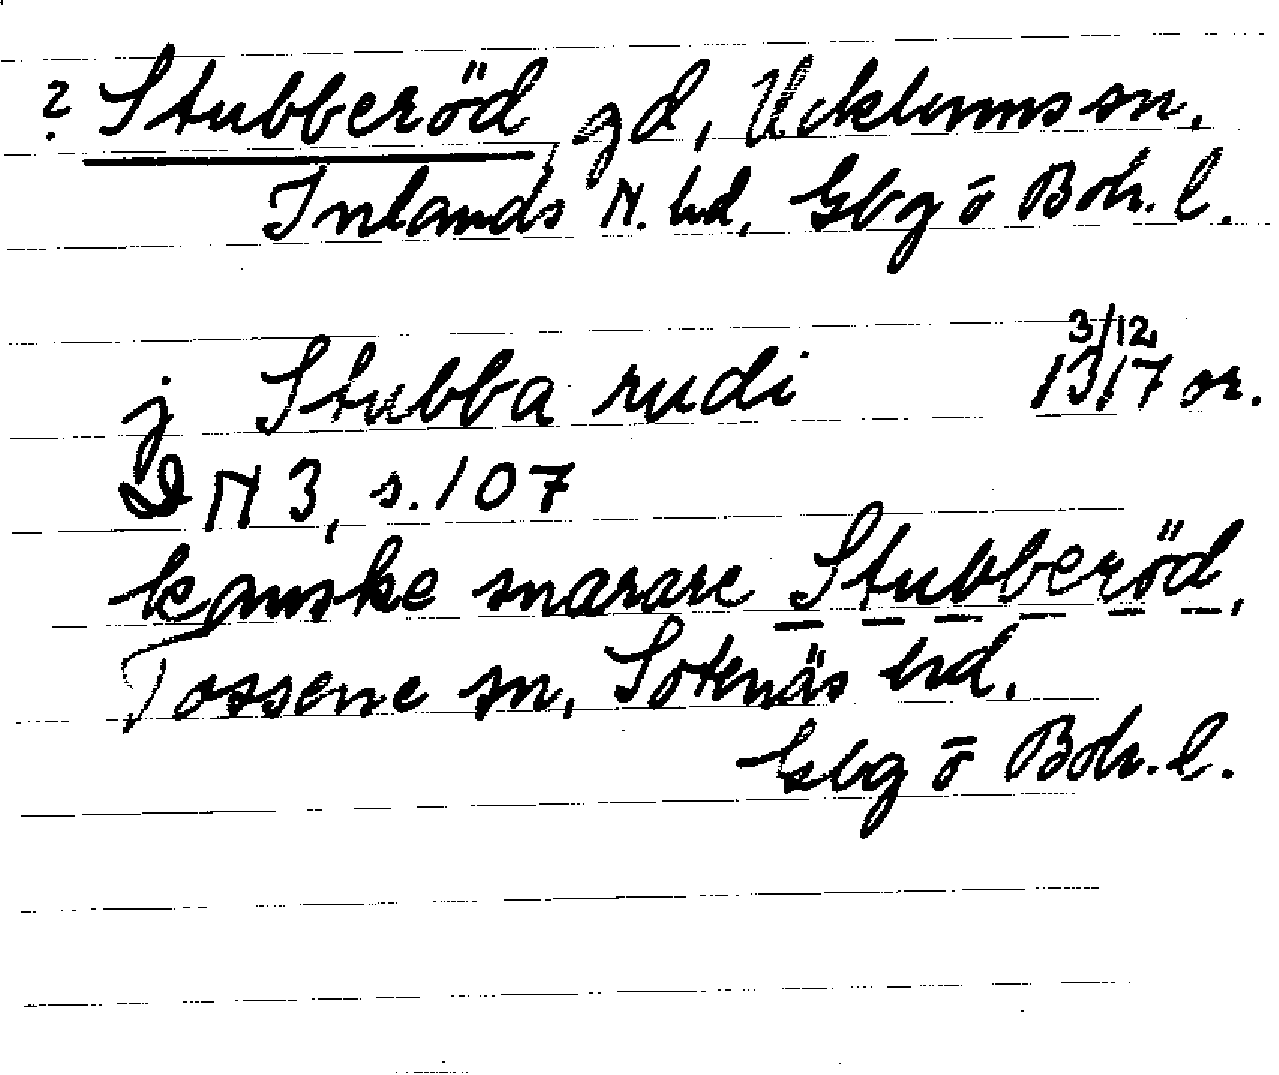 ? Stubberöd, gd, Ucklums sn,
Inlands N. hd, Gbg o Boh. l.
j Stubba rudi 3/12 1317 or.
DN 3, s. 107
kanske snarare Stubberöd,
Tossene sn, Sotenäs hd.
Gbg o Boh. l.